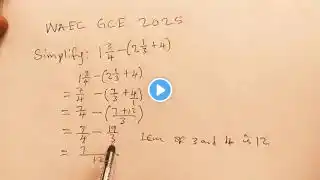 WAEC GCE 2025
Simplify: 1 3/4 - (2 1/3 + 4)
1 3/4 - (2 1/3 + 4)
= 7/4 - (7/3 + 4/1)
= 7/4 - (7+12/3)
= 7/4 - 19/3 Lcm of 3 and 4 is 12
= 7
12